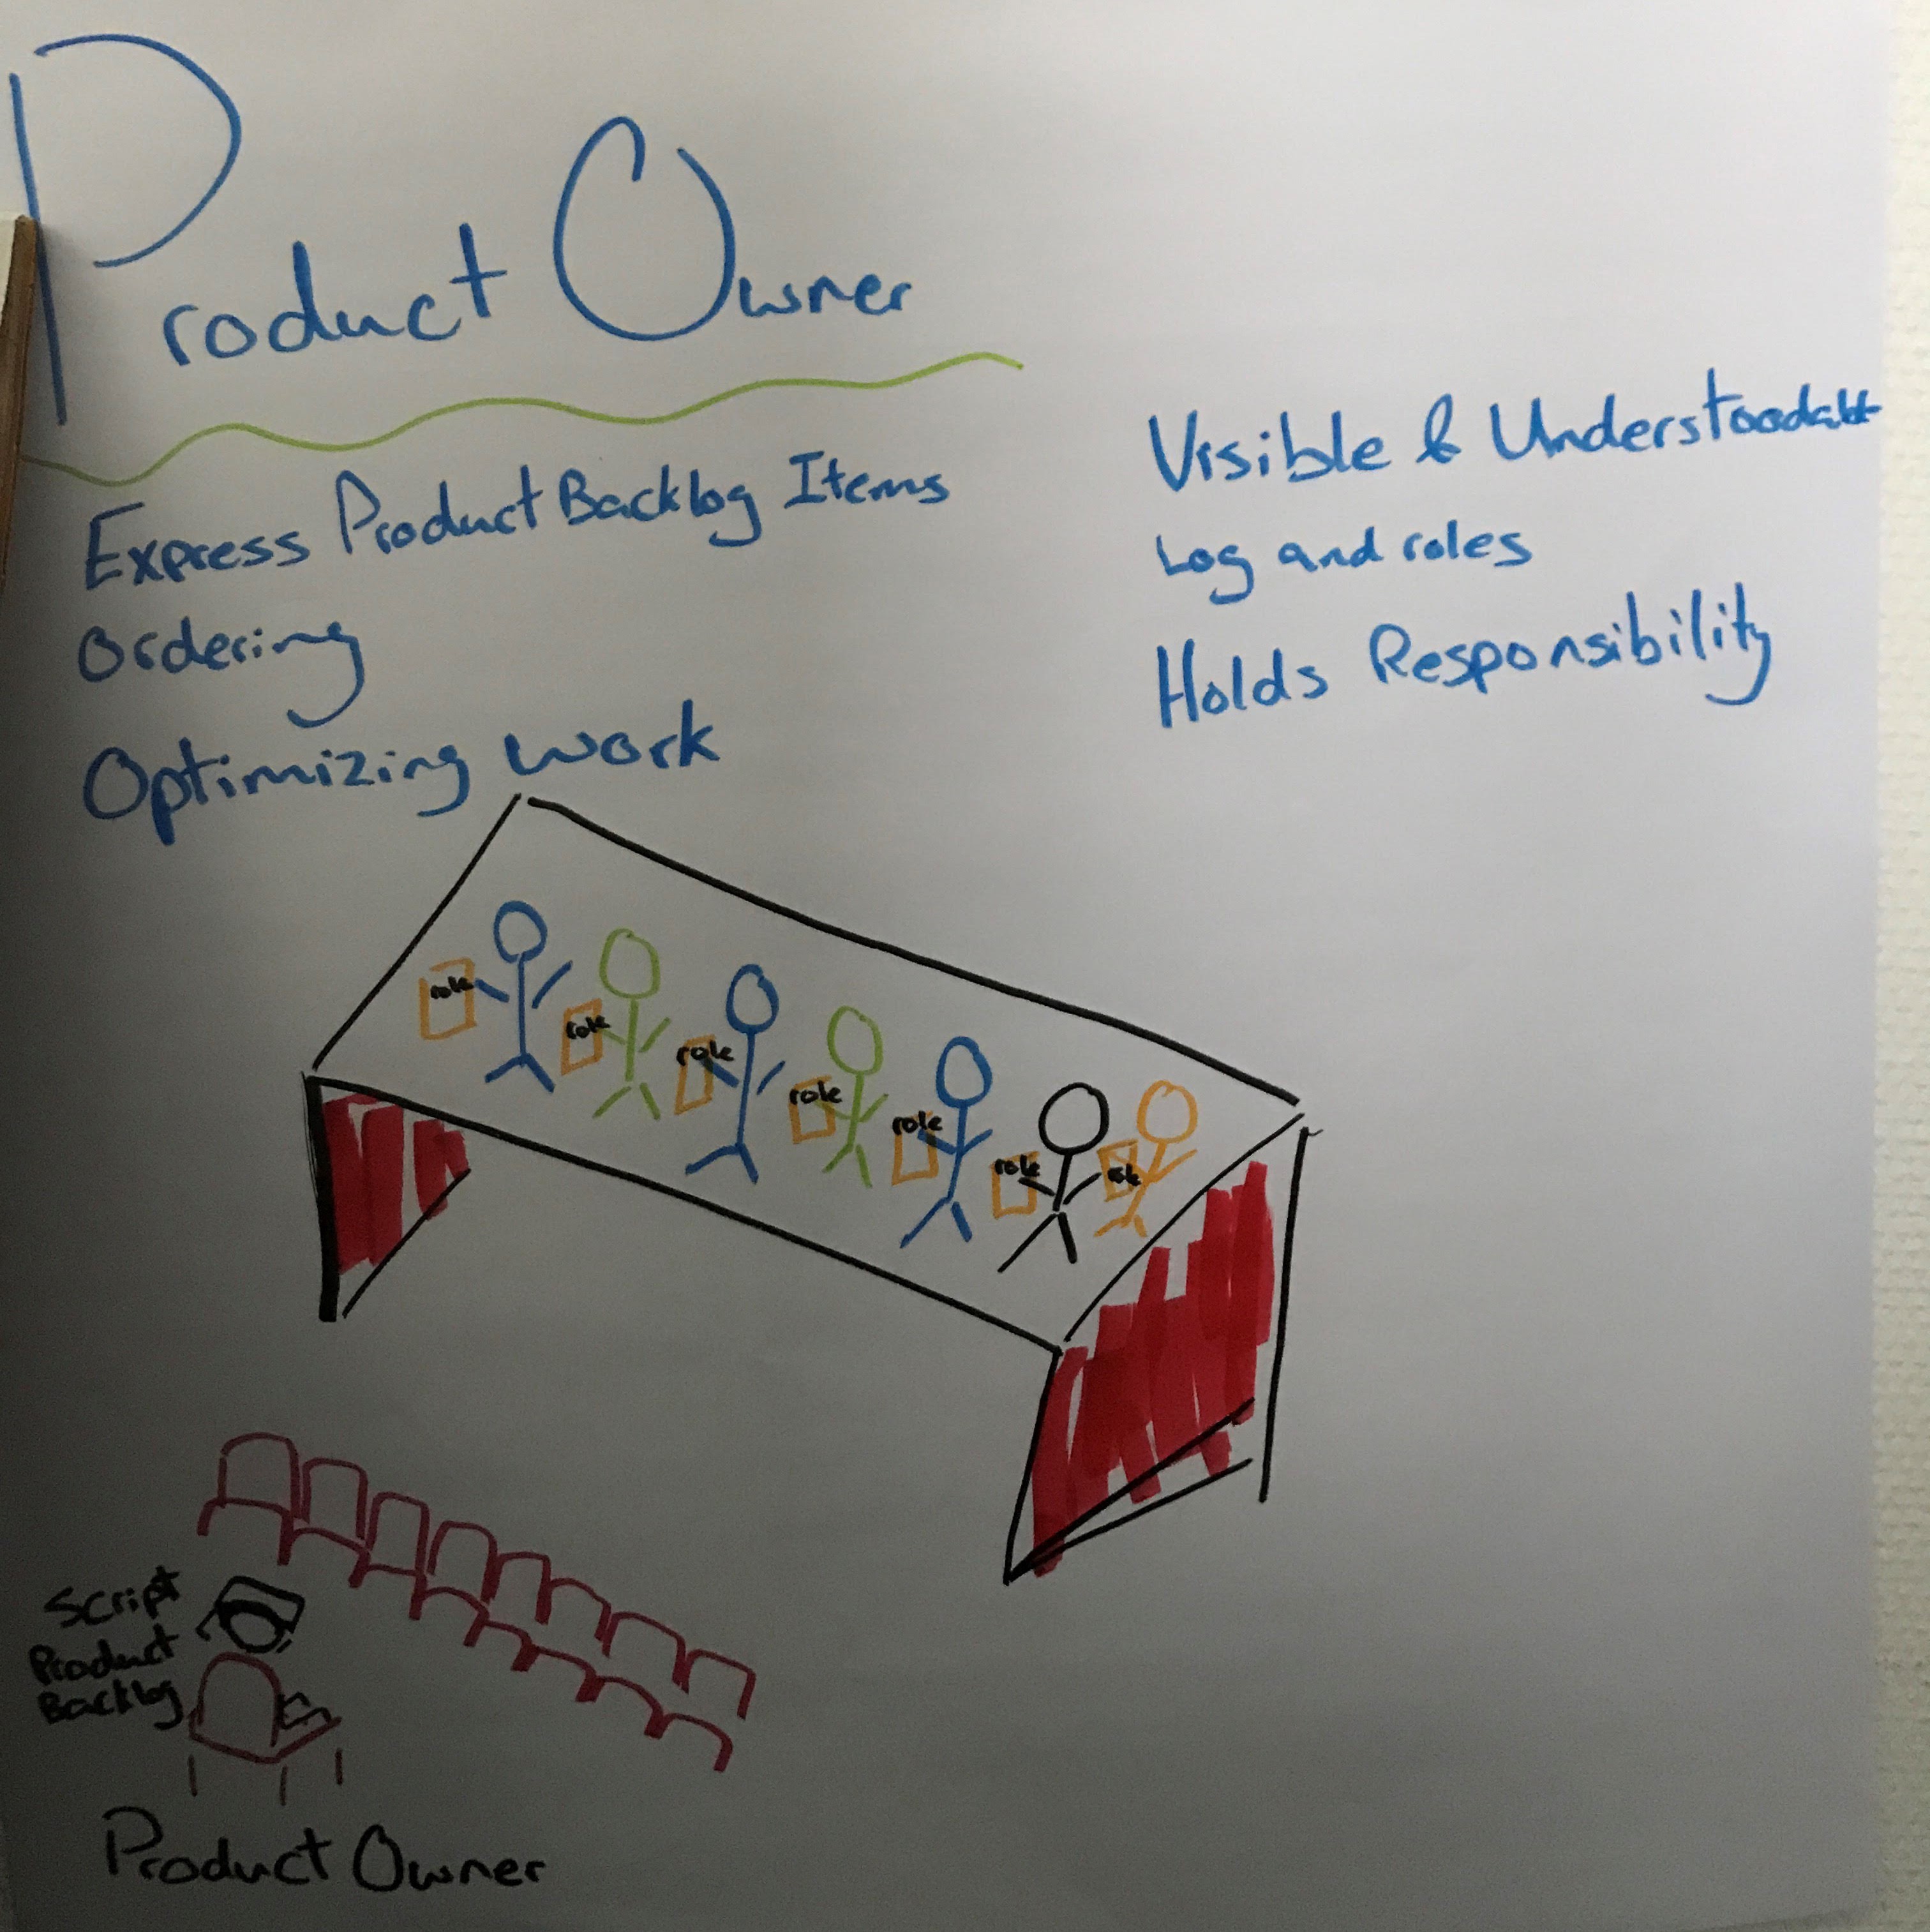 Product Owner
Express Product Backlog Items
Ordering
Optimizing work
Visible & Understoodable
Log and roles
Holds Responsibility
role
role
role
role
role
role
role
Script
Product
Backlog
Product Owner